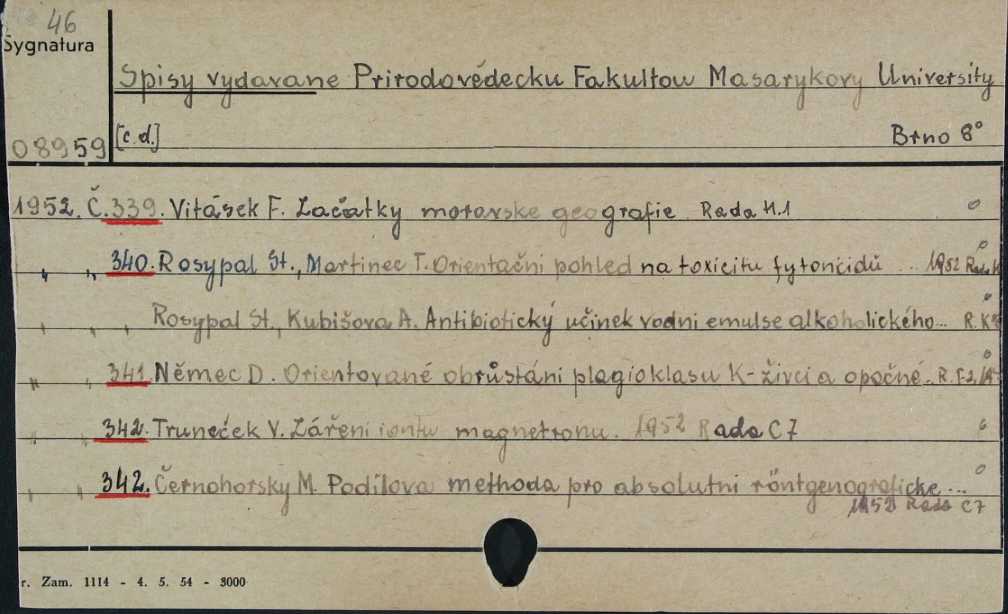 46
Sygnatura
Spisy vydavane Přirodovédecku Fakultou Masarykovy University
08959 [c.d.] Brno 8°
1952. Č. 339. Vitásek F. Začátky moravske geografie. Rada H.1
" " 340. Rosypal St., Martinec T. Orientační pohled na toxicitu fytoncidů .. 1952 Rada K
" " Rosypal St., Kubišova A. Antibiotický učinek vodni emulse alkoholického... R. K
" " 341. Němec D. Orientované obrůstáni plagioklasu K-živci a opačné.. R. F-2,
" " 342. Truneček V. Zářeni iontu magnetronu. 1952 Rada C7
" " 342. Černohorsky M. Podílova methoda pro absolutni röntgenograficke ...
1952 Rada C7
r. Zam. 1114 - 4. 5. 54 - 3000